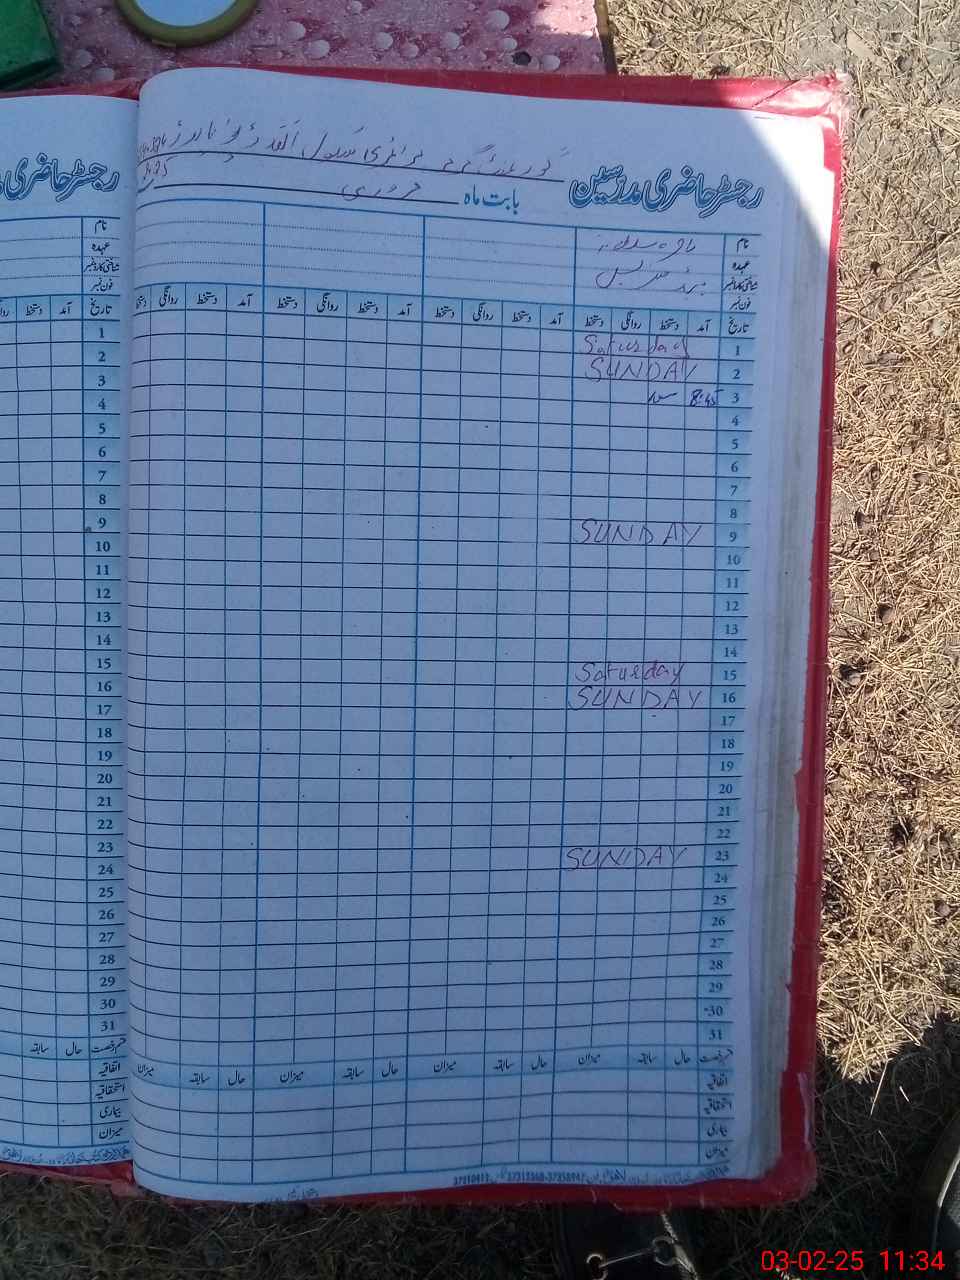 رجسٹر حاضری مدرسین گورنمنٹ گرلز پرائمری سکول
بابت ماہ فروری
نام
عہدہ
شناختی کارڈ نمبر
فون نمبر
تاریخ آمد دستخط روانگی دستخط آمد دستخط روانگی دستخط آمد دستخط روانگی دستخط آمد دستخط روانگی دستخط
1 Saturday
2 SUNDAY
3 8:45
4
5
6
7
8
9 SUNDAY
10
11
12
13
14
15 Saturday
16 SUNDAY
17
18
19
20
21
22
23 SUNDAY
24
25
26
27
28
29
30
31
قسم رخصت حال سابقہ میزان حال سابقہ میزان حال سابقہ میزان حال سابقہ میزان
اتفاقیہ
استحقاقیہ
بیماری
میزان
رجسٹر حاضری
نام
عہدہ
شناختی کارڈ نمبر
فون نمبر
تاریخ آمد دستخط
1
2
3
4
5
6
7
8
9
10
11
12
13
14
15
16
17
18
19
20
21
22
23
24
25
26
27
28
29
30
31
قسم رخصت حال سابقہ
اتفاقیہ
استحقاقیہ
بیماری
میزان
03-02-25 11:34